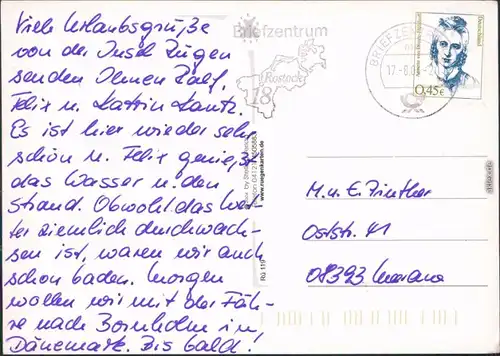 Viele Urlaubsgrüße
von der Insel Rügen
senden Ihnen Ralf,
Felix u. Katrin Kautz.
Es ist hier wieder sehr
schön u. Felix genießt
das Wasser u. den
Strand. Obwohl das Wet-
ter ziemlich durchwach-
sen ist, waren wir auch
schon baden. Morgen
wollen wir mit der Fäh-
re nach Bornholm in
Dänemark. Bis bald!
Briefzentrum
Rostock
18
BRIEFZENTRUM
Deutschland
0,45€
www.ruegenkarten.de
Rü 119
M. u. E. Zinther
Oststr. 41
08393 Meerane